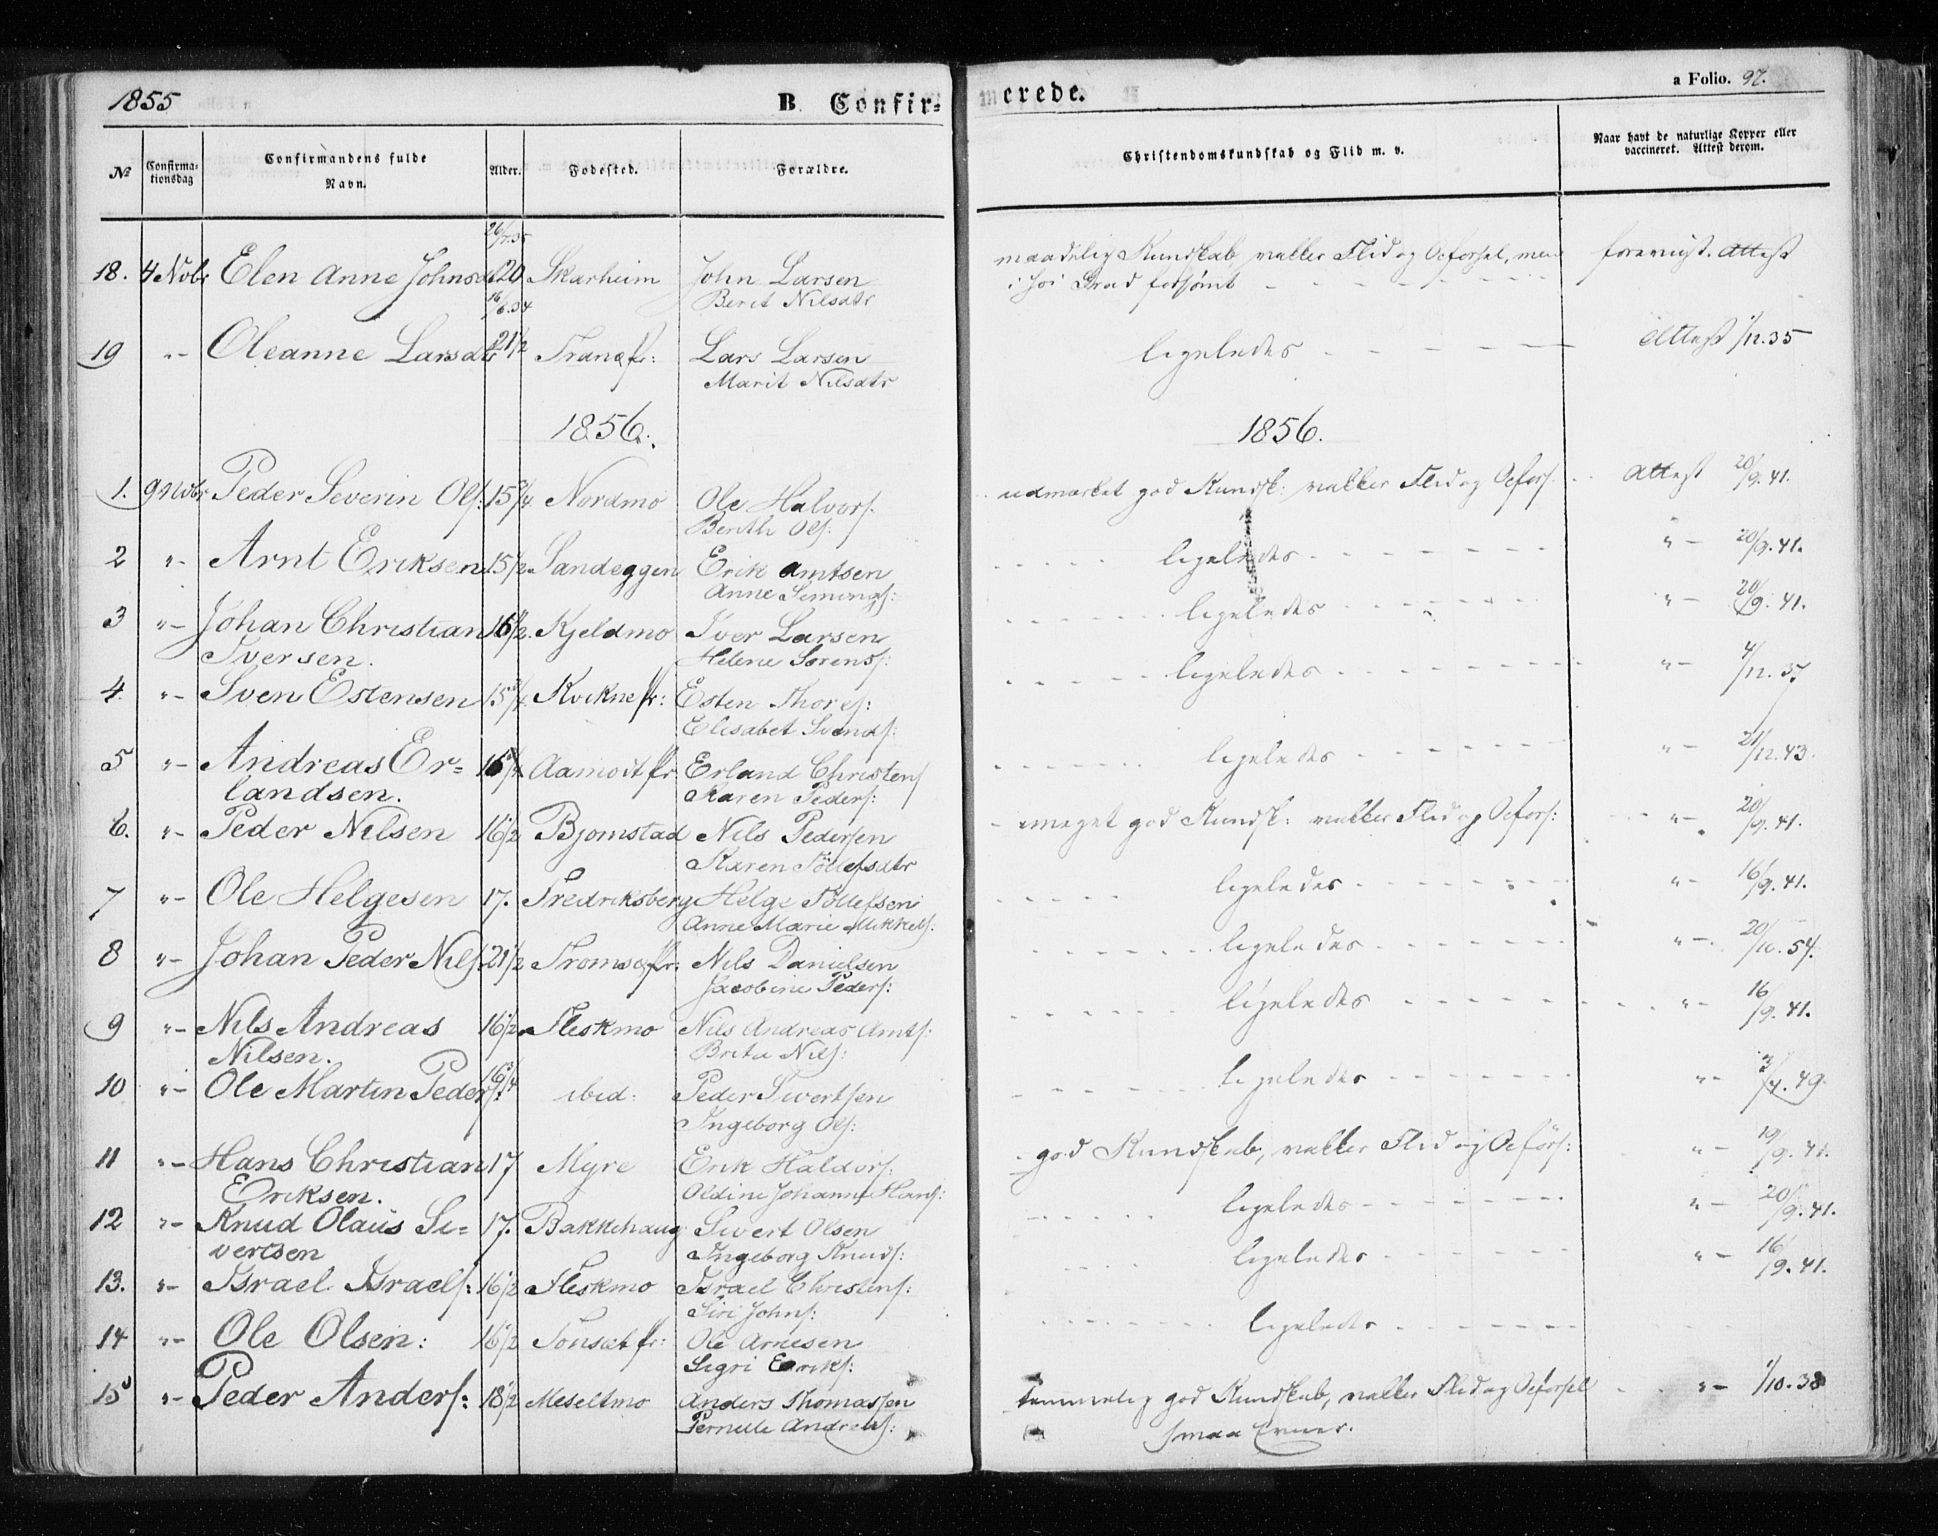 1855 B. Confir- merede. a Folio. 97.
No Confirmationsdag Confirmandens fulde Navn. Alder. Fødested. Forældre. Christendomskundskab og Flid m. v. Naar havt de naturlige Kopper eller vaccineret. Attest derom.
26/7.35
18. 4 Nobr Elen Anne Johnsd 20 Skarheim John Larsen maadelig Kundskab, vakker Flid og Opførsel, men forevist. Attest
Berit Nilsdtr i høi Grad forsømt
16/6.34
19 "- Oleanne Larsdtr 21 1/2 Tranø fr: Lars Larsen ligeledes Attest 1/12.35
Marit Nilsdtr
1856. 1856.
1. 9 Nobr Peder Severin Ols: 15 3/4 Nordmo Ole Halvors. udmærket god Kundsk: vakker Flid og Opførs. Attest 20/9.41.
Berith Ols:
2 "- Arnt Eriksen 15 1/2 Sandeggen Erik Amtsen ligeledes "- 20/9.41.
Anne Simings:
3 "- Johan Christian 16 1/2 Kjeldmo Iver Larsen ligeledes "- 20/9.41.
Iversen. Helene Sørens:
4. "- Sven Estensen 15 3/4 Kvikne fr: Esten Thores: ligeledes "- 4/12.37
Elisabet Svends:
5 "- Andreas Er- Aamodt fr: Erland Christens ligeledes "- 21/12.43.
landsen. Karen Peders:
6. "- Peder Nilsen 16 1/2 Bjornstad Nils Pedersen meget god Kundsk: vakker Flid og Opførs: "- 20/9.41.
Karen Tøllefsdtr
7 "- Ole Helgesen 17. Fredriksberg Helge Tøllefsen ligeledes "- 16/9.41.
Anne Marie Mikkels:
8 "- Johan Peder Nils. 21 1/2 Tromsø fr: Nils Danielsen ligeledes "- 20/11.54.
Jacobine Peders:
9 "- Nils Andreas 16 1/2 Fleskmo Nils Andreas Amts: ligeledes "- 16/9.41.
Nilsen. Brita Nils:
10 "- Ole Martin Peders: 16 3/4 ibid: Peder Sivertsen ligeledes "- 3/4.49.
Ingeborg Ols:
11 "- Hans Christian 17 Myre Erik Haldors: god Kundskab, vakker Flid og Opførs: "- 19/9.41.
Eriksen. Oldine Johanne Hans:
12 "- Knud Olaus Si- 17. Bakkehaug Sivert Olsen ligeledes "- 20/9.41.
vertsen Ingeborg Knuds:
13. "- Israel Israels: 16 1/2 Fleskmo Israel Christens: ligeledes "- 16/9.41.
Siri Johns:
14 "- Ole Olsen: 16 1/2 Tønsæt fr: Ole Arnesen ligeledes
Sigri Eriks:
15 "- Peder Anders: 18 1/2 Meseltmo Anders Thomassen temmelig god Kundskab, vakker Flid og Opførsel "- 1/10.38
Pernille Andreas: smaa Evner.